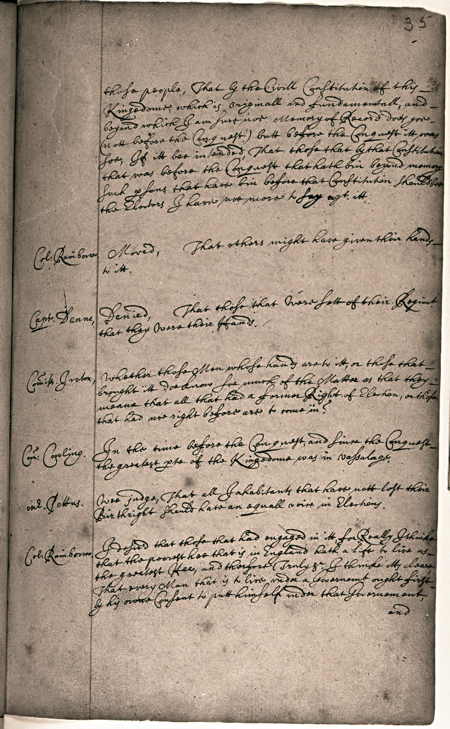 35
those people, That by the Civill Constitution of this
Kingedome, which is originall and fundamentall, and
beyond which I am sure noe Memory of Record does goe
(nott before the Conquest) butt before the Conquest itt was
soe. If itt bee intended, That those that by that Constitution
that was before the Conquest that hath bin beyond memory
such p'sons that have bin before that Constitution should bee
the Electors I have noe more to say ag't. itt.
Col: Rainborow Moved, That others might have given their hands
to itt.
Capt. Denne, Denied, That those that were sett of their Regim't
that they were their Hands.
Com'iss. Ireton, Whether those Men whose hands are to itt, or those that
brought itt doe know soe much of the Matter as that they
meane that all that had a former Right of Election, or those
that had noe right before are to come in?
Com: Cowling. In the time before the Conquest, and since the Conquest
the greatest p'te of the Kingedome was in vassalage.
Mr. Pettus. Wee judge, That all Inhabitants that have nott lost their
Birthright should have an equall voice in Elections.
Col: Rainborow I desired that those that had engaged in itt for Really I thinke
that the poorest hee that is in England hath a Life to live as
the greatest Hee, and therefore Truly S'r, I thinke itts cleare
That every Man that is to live under a Governem't ought first
by his owne Consent to putt himself under that Governement,
and